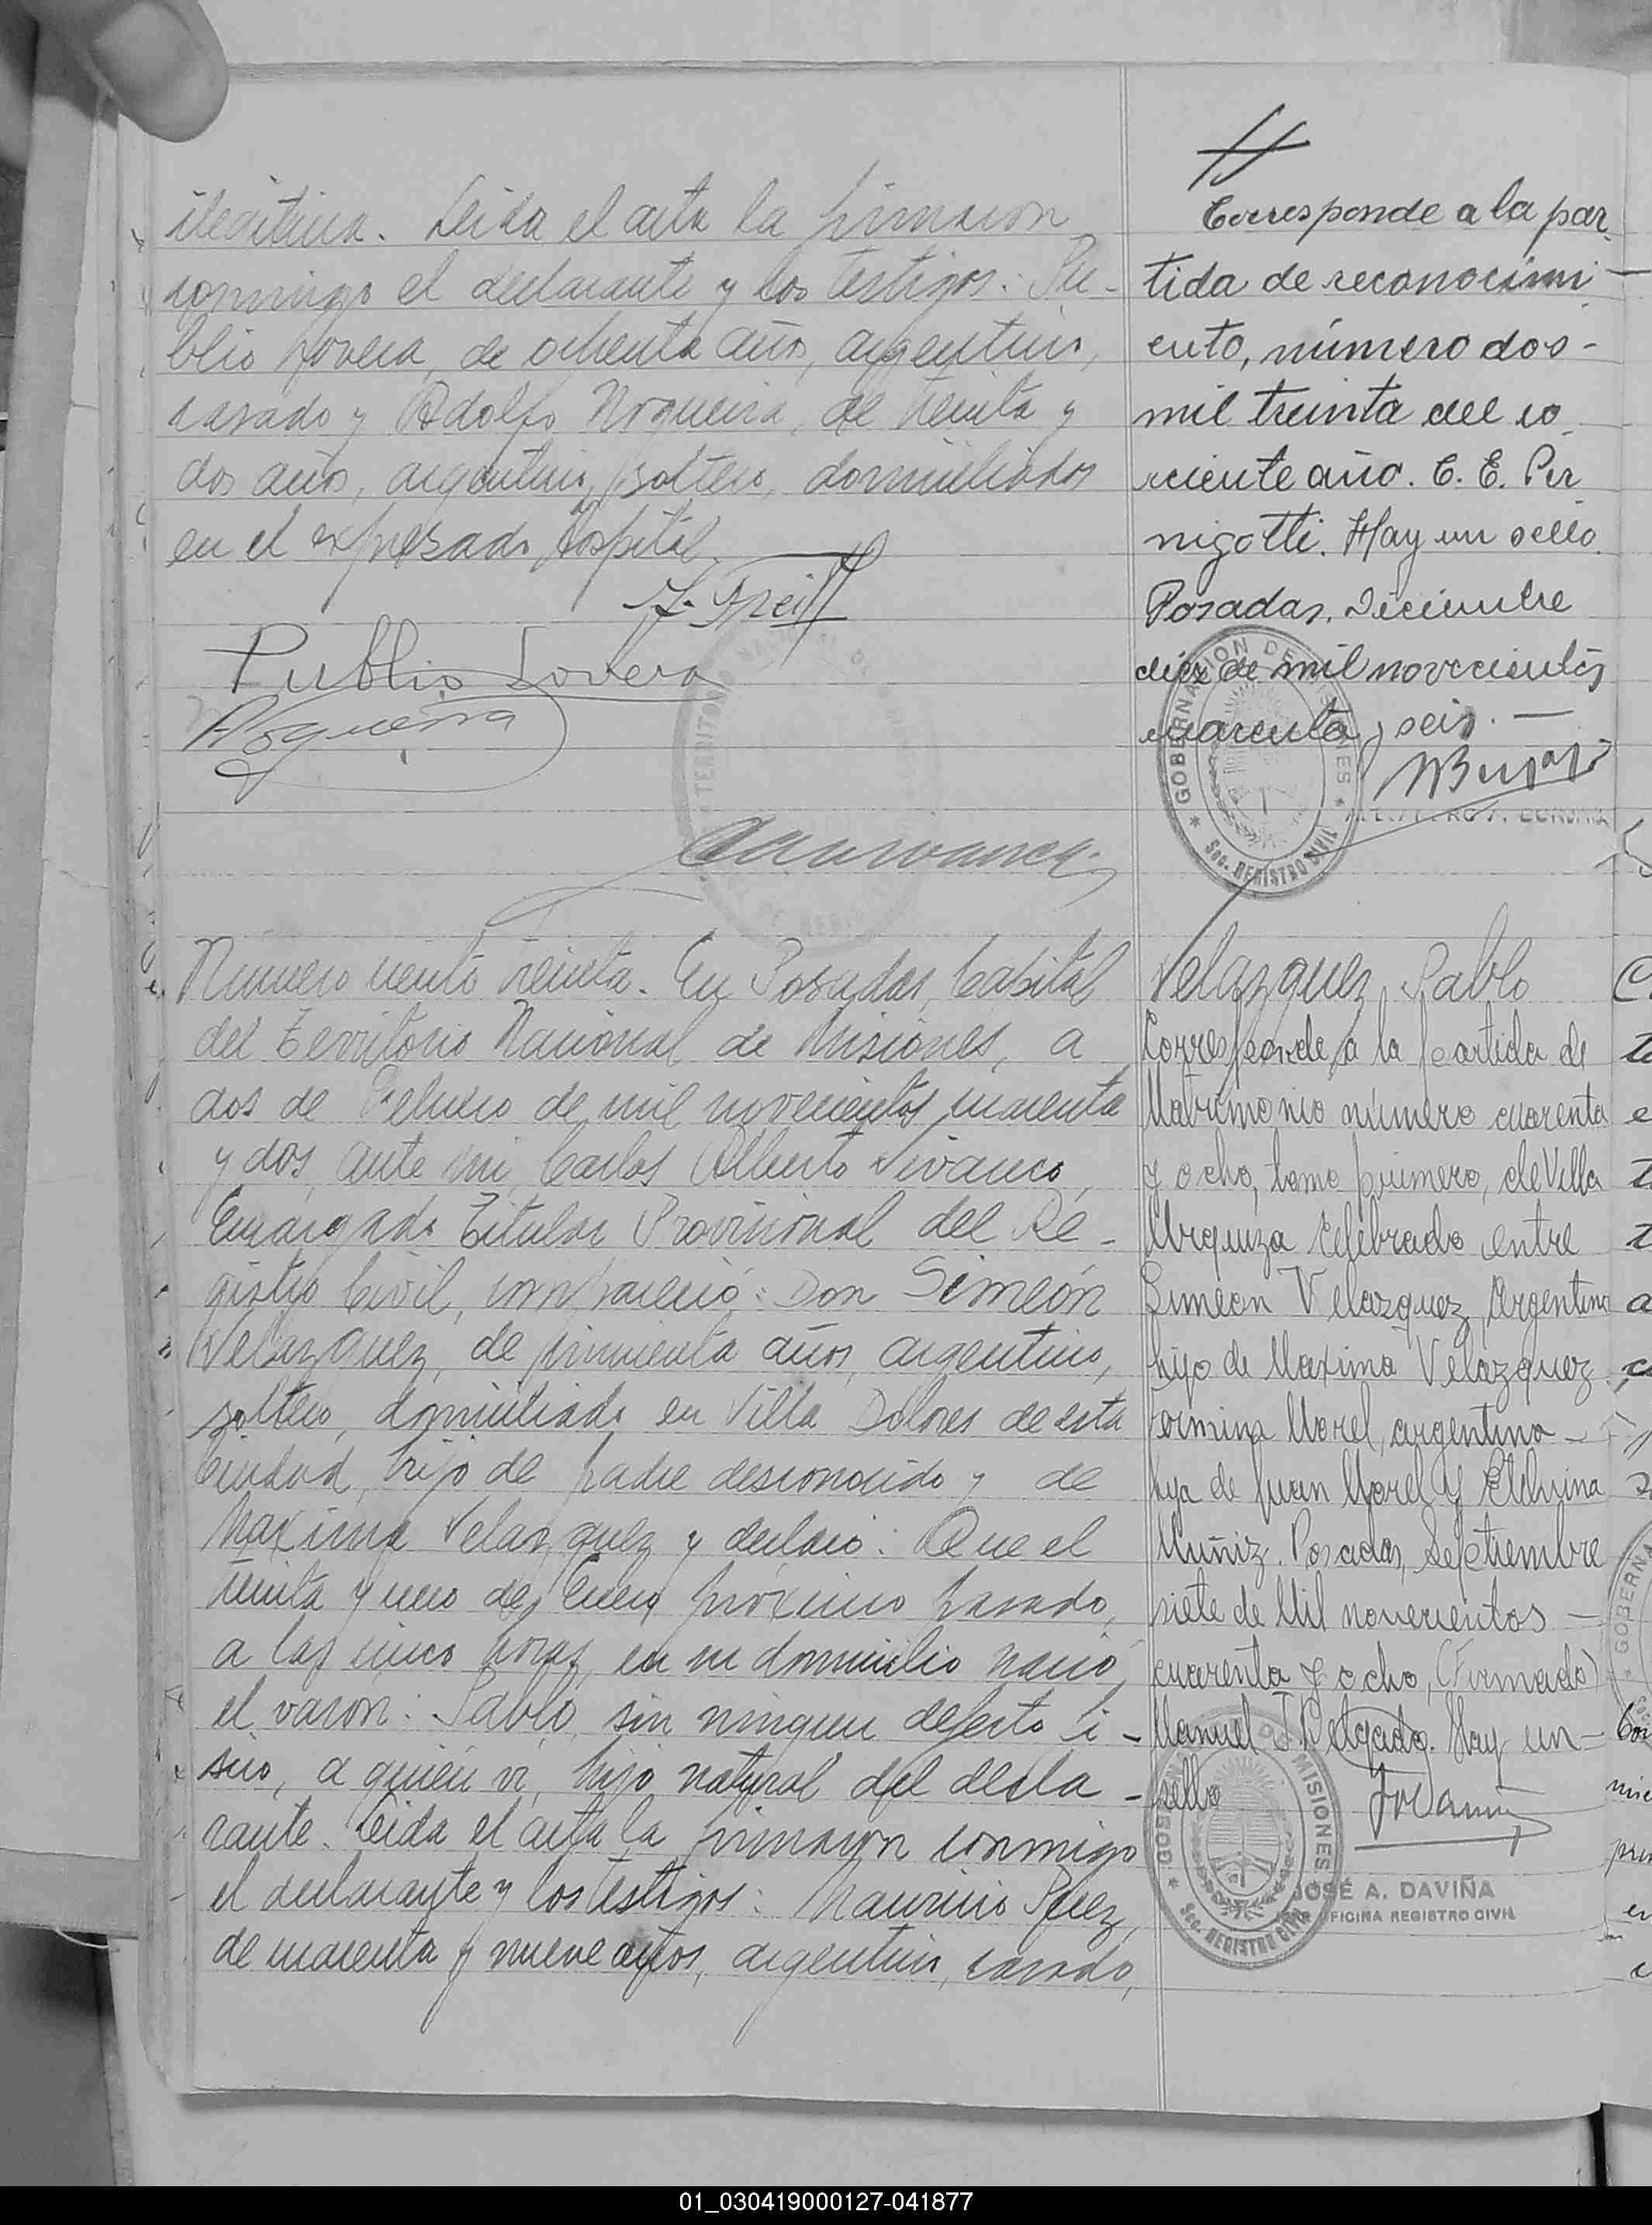 ilegitima. Leida el acta la firmaron
conmigo el declarante y los testigos: Pu-
blio Lovera, de ochenta años, argentino,
casado y Adolfo Nogueira, de treinta y
dos años, argentino, soltero, domiciliados
en el expresado Hospital.
Publio Lovera
ANogueira
Número ciento treinta. En Posadas, Capital
del Territorio Nacional de Misiones, a
dos de Febrero de mil novecientos cuarenta
y dos, ante mi, Carlos Alberto Vivanco,
Encargado Titular Provisional del Re-
gistro Civil, compareció: Don Simeón
Velazquez, de cincuenta años, argentino,
soltero, domiciliado en Villa Dolores de esta
Ciudad, hijo de padre desconocido y de
Maxima Velazquez y declaró: Que el
treinta y uno de Enero próximo pasado,
a las cinco horas, en su domicilio nació
el varón: Pablo, sin ningun defecto fi-
sico, a quien vi, hijo natural del decla-
rante. Leida el acta la firmaron conmigo
el declarante y los testigos: Mauricio
de cuarenta y nueve años, argentino, casado,
Corresponde a la par
tida de reconocimi-
ento, número dos-
mil treinta del co
rriente año. C. E. Per
nigotti. Hay un sello.
Posadas, Diciembre
diez de mil novecientos
cuarenta y seis.-
GOBERNACION DE MISIONES
Sec. REGISTRO CIVIL
Velazquez, Pablo
Corresponde a la partida de
Matrimonio número cuarenta
y ocho, tomo primero, de Villa
Urquiza celebrado entre
Simeon Velazquez, Argentino
hijo de Maxima Velazquez.
Fermina Morel, argentina-
hija de Juan Morel y Etelvina
Muñiz. Posadas, Septiembre
siete de Mil novecientos-
cuarenta y ocho, (Firmado)
Manuel J. Delgado. Hay un-
sello
GOBERNACION DE MISIONES
Sec. REGISTRO CIVIL
JOSÉ A. DAVIÑA
OFICINA REGISTRO CIVIL
01_030419000127-041877